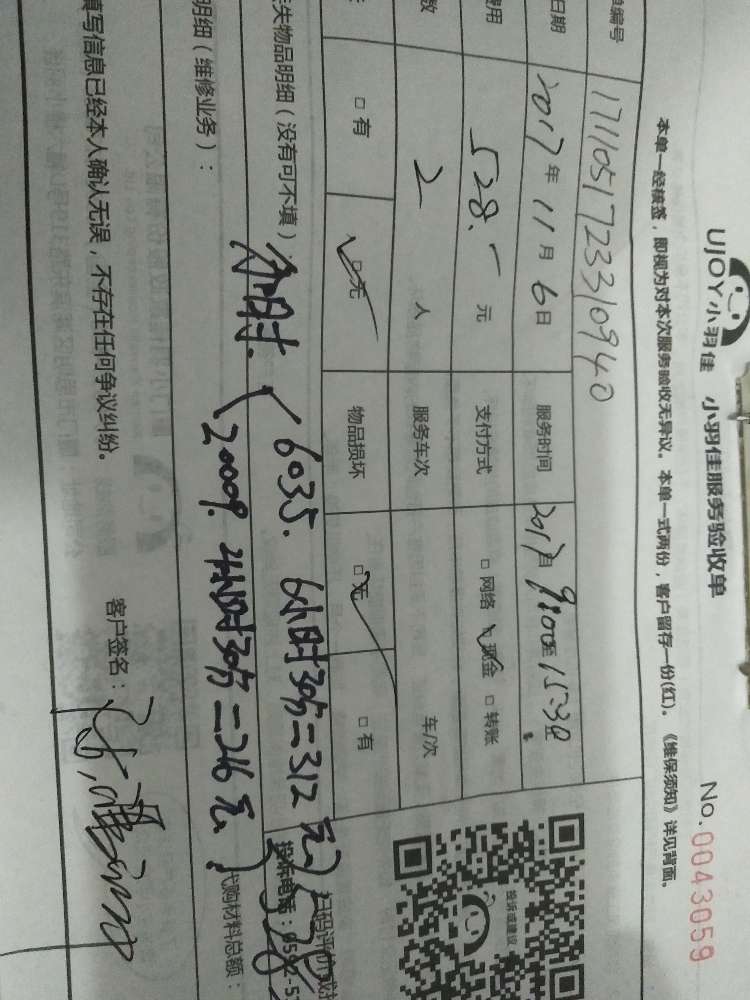 UJOY小羽佳 小羽佳服务验收单 No.0043059
本单一经核签，即视为对本次服务验收无异议。本单一式两份，客户留存一份(红)。《维保须知》详见背面。
单编号 1711051723310940
日期 2017年11月6日 服务时间 2017 9:00至15:30
费用 528.- 元 支付方式 □网络 ☑现金 □转账
数 2 人 服务车次 车/次
□有 ☑无 物品损坏 ☑无 □有
丢失物品明细（没有可不填）
6035. 6小时30分=312元
2009. 4小时30分=216元
528
扫码评价或投
投诉或建议
投诉电话：0592-5
明细（维修业务）：
代购材料总额：
填写信息已经本人确认无误，不存在任何争议纠纷。
客户签名：